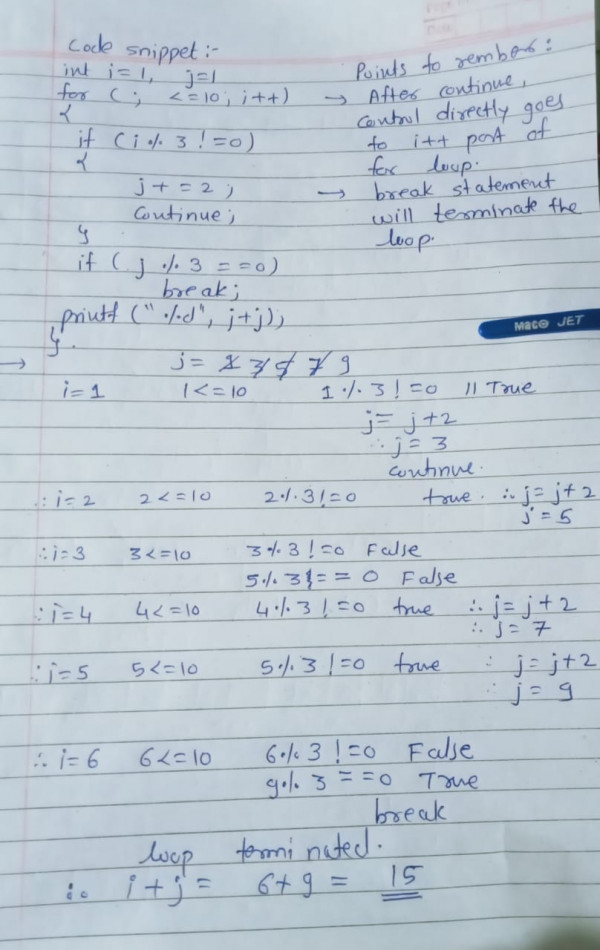 Code snippet :-
int i=1, j=1
for ( ; <=10; i++)
{
if (i % 3 != 0)
{
j += 2 ;
continue ;
}
if ( j % 3 == 0)
break ;
printf (" %d", j+j);
}.
Points to rembers :
→ After continue,
control directly goes
to i++ part of
for loop.
→ break statement
will terminate the
loop.
Maco JET
→ j = 1 3 5 7 9
i=1 1<=10 1 % 3 != 0 || True
j = j+2
∴ j = 3
continue.
∴ i=2 2<=10 2 % 3 != 0 true. ∴ j = j+2
j = 5
∴ i=3 3<=10 3 % 3 != 0 False
5 % 3 == 0 False
∴ i=4 4<=10 4 % 3 != 0 true ∴ j = j+2
∴ j = 7
∴ i=5 5<=10 5 % 3 != 0 true ∴ j = j+2
∴ j = 9
∴ i=6 6<=10 6 % 3 != 0 False
9 % 3 == 0 True
break
loop terminated.
∴ i+j = 6+9 = 15